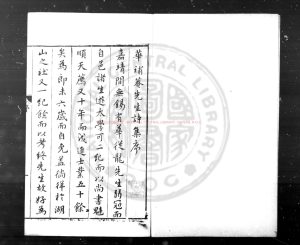 華補菴先生詩集序
嘉靖間無錫有華從龍先生弱冠而
自邑諸生遊太學可二紀而以尚書魁
順天薦又十年而成進士業五十餘
矣為郎未六歲而自免蓋倘徉於湖
山之社又一紀餘而以考終先生故好為
LIBRARY